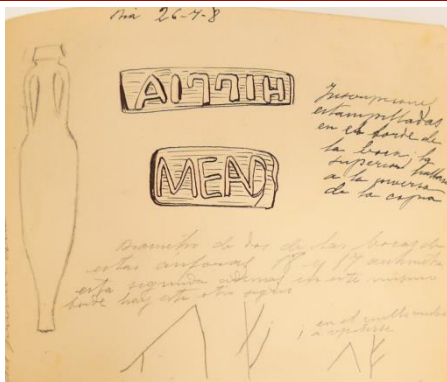 Dia 26-7-8
AIΓΓIH
MEAD
Inscripciones
estampilladas
en el borde de
la boca, la
superior hallase
a la inversa
de la copia
Diametro de dos de las bocas de
estas ánforas 18 y 17 centimetros
esta segunda además en este mismo
borde hay este otro signo
en el cuello